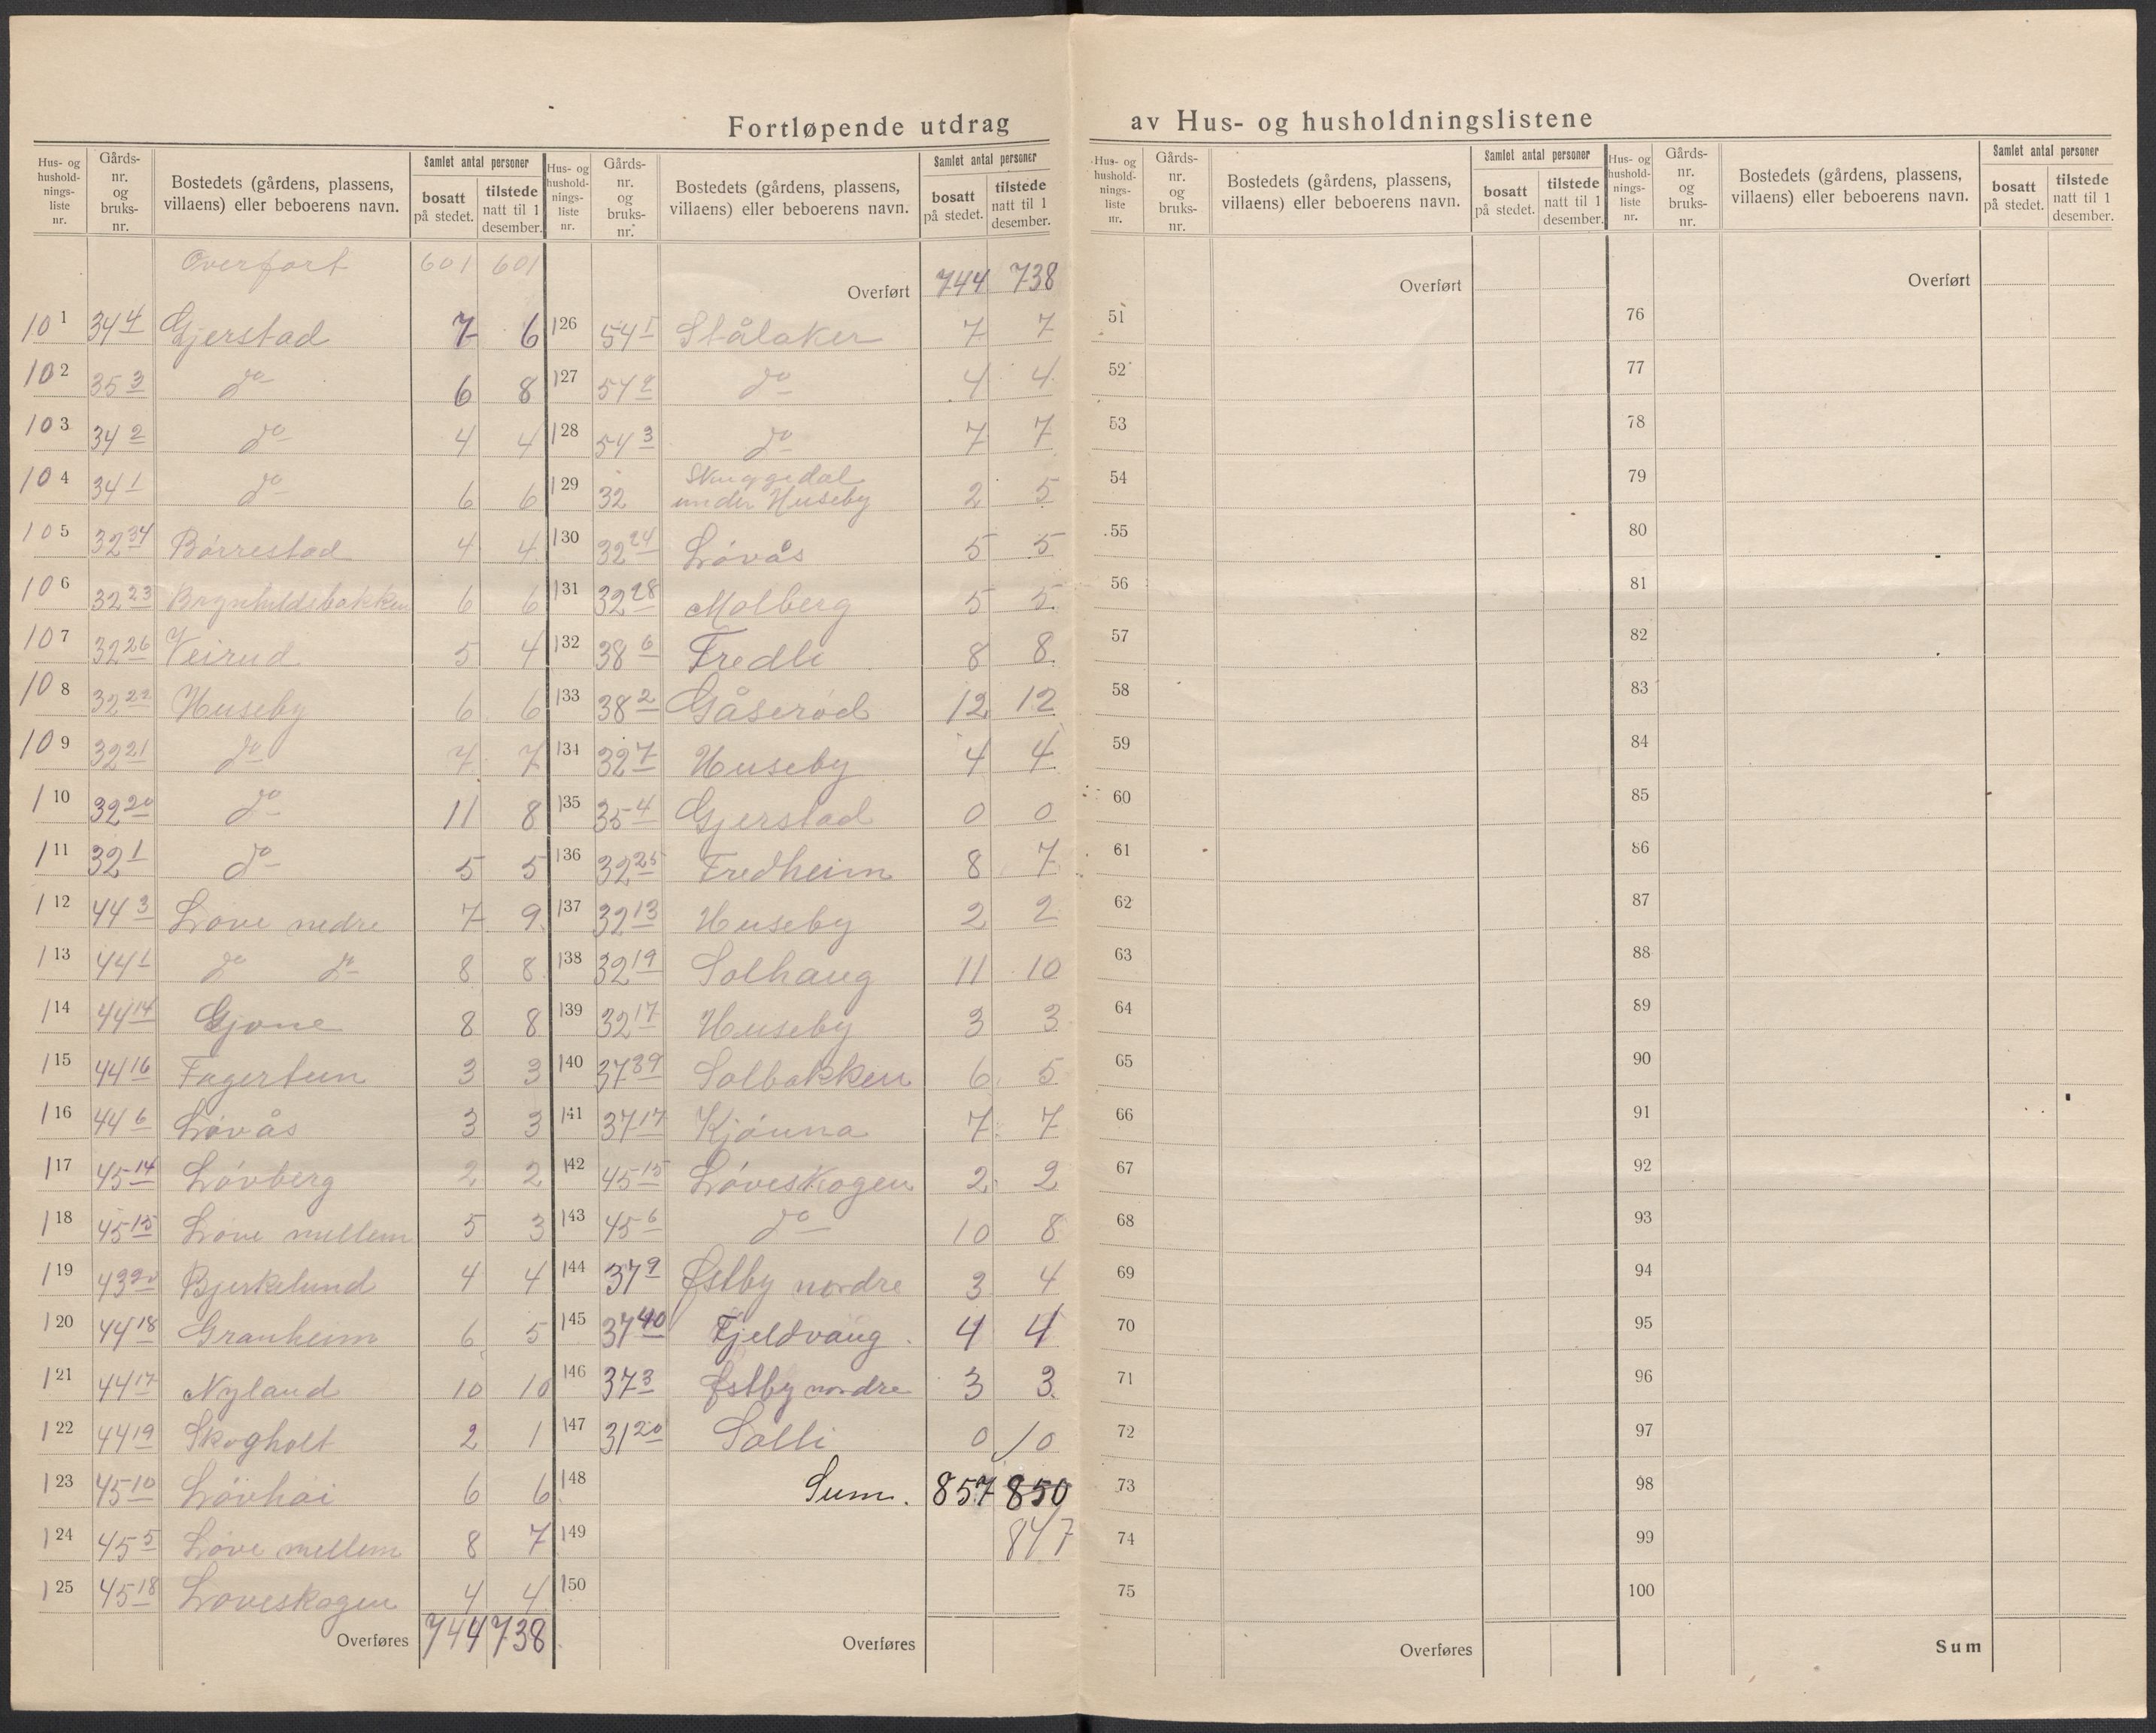 Fortløpende utdrag av Hus- og husholdningslistene
Hus- og hushold- nings- liste nr. | Gårds- nr. og bruks- nr. | Bostedets (gårdens, plassens, villaens) eller beboerens navn. | Samlet antal personer bosatt på stedet. | tilstede natt til 1 desember.
Overført 601 601
101 34 4 Gjerstad 7 6
102 35 3 do 6 8
103 34 2 do 4 4
104 34 1 do 6 6
105 32 34 Børrestad 4 4
106 32 23 6 6
107 32 26 Veirud 5 4
108 32 22 Huseby 6 6
109 32 21 do 7 7
110 32 20 do 11 8
111 32 1 do 5 5
112 44 3 Løve nedre 7 9
113 44 1 do do 8 8
114 44 14 Gjone 8 8
115 44 16 Fagertun 3 3
116 44 6 Løvås 3 3
117 45 14 Løvberg 2 2
118 45 15 Løve mellem 5 3
119 43 20 Bjerkelund 4 4
120 44 18 Granheim 6 5
121 44 17 Nyland 10 10
122 44 19 Skogholt 2 1
123 45 10 Løvhøi 6 6
124 45 5 Løve mellem 8 7
125 45 18 Løveskogen 4 4
Overføres 744 738
Hus- og hushold- nings- liste nr. | Gårds- nr. og bruks- nr. | Bostedets (gårdens, plassens, villaens) eller beboerens navn. | Samlet antal personer bosatt på stedet. | tilstede natt til 1 desember.
Overført 744 738
126 54 1 Stålaker 7 7
127 54 2 do 4 4
128 54 3 do 7 7
129 32 Skuggedal under Huseby 2 5
130 32 24 Løvås 5 5
131 32 28 Molberg 5 5
132 38 6 Fredli 8 8
133 38 2 Gåserød 12 12
134 32 7 Huseby 4 4
135 35 4 Gjerstad 0 0
136 32 25 Fredheim 8 7
137 32 13 Huseby 2 2
138 32 19 Solhaug 11 10
139 32 17 Huseby 3 3
140 37 39 Solbakken 6 5
141 37 17 Kjønna 7 7
142 45 15 Løveskogen 2 2
143 45 6 do 10 8
144 37 9 Østby nordre 3 4
145 37 40 Fjeldvang 4 4
146 37 3 Østby nordre 3 3
147 31 20 Solli 0 0
148 Sum. 857 850
149 847
150
Overføres
Hus- og hushold- nings- liste nr. | Gårds- nr. og bruks- nr. | Bostedets (gårdens, plassens, villaens) eller beboerens navn. | Samlet antal personer bosatt på stedet. | tilstede natt til 1 desember.
Overført
51
52
53
54
55
56
57
58
59
60
61
62
63
64
65
66
67
68
69
70
71
72
73
74
75
Overføres
Hus- og hushold- nings- liste nr. | Gårds- nr. og bruks- nr. | Bostedets (gårdens, plassens, villaens) eller beboerens navn. | Samlet antal personer bosatt på stedet. | tilstede natt til 1 desember.
Overført
76
77
78
79
80
81
82
83
84
85
86
87
88
89
90
91
92
93
94
95
96
97
98
99
100
Sum